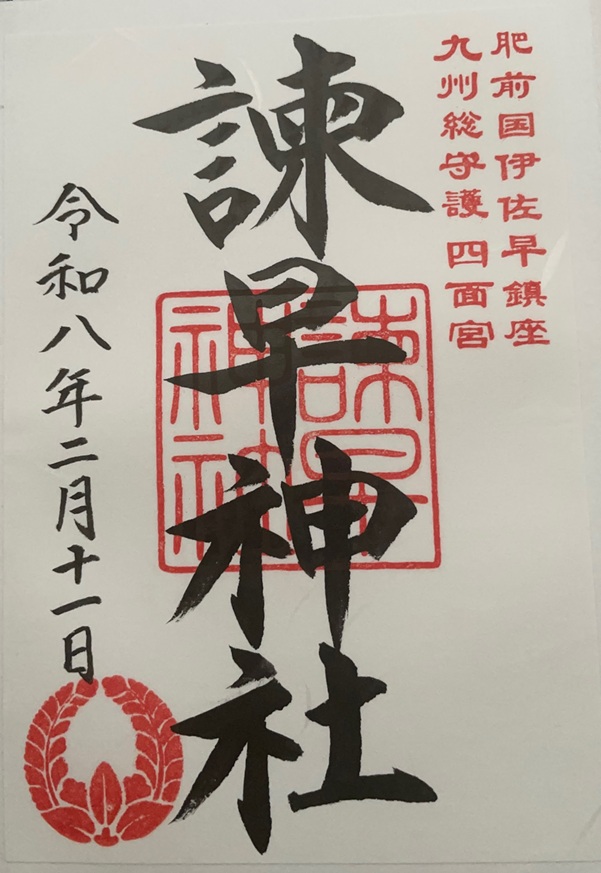 肥前国伊佐早鎮座
九州総守護 四面宮
諫早神社
諫早神社
令和八年二月十一日